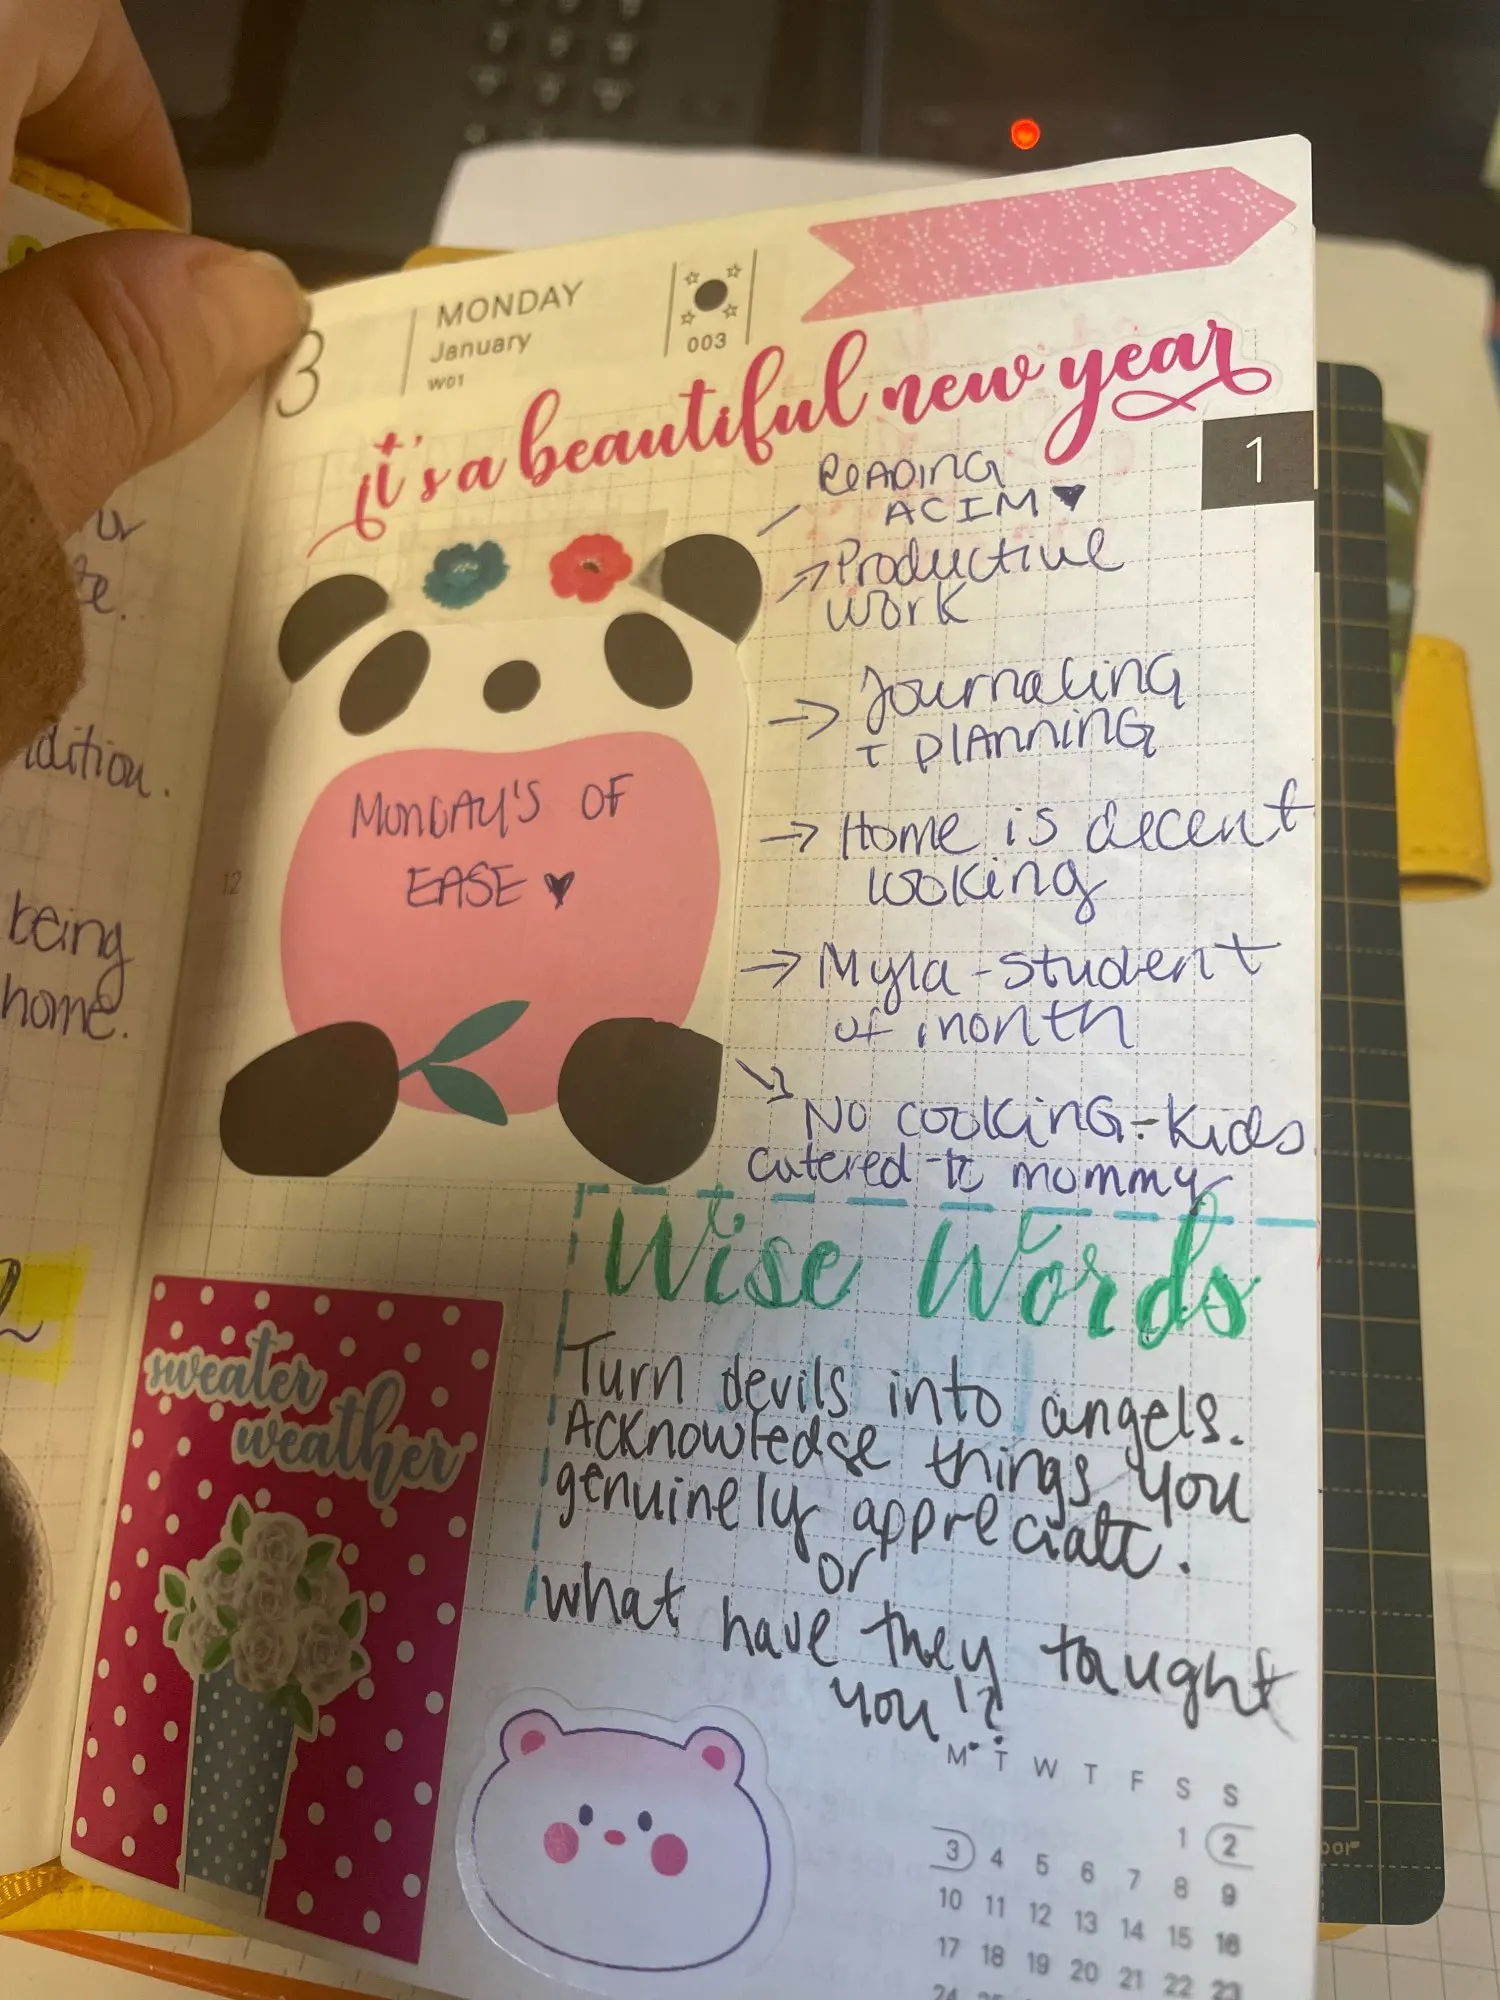 3
MONDAY
January
W01
003
it's a beautiful new year
1
READING
ACIM ♥
→ Productive
work
→ Journaling
+ PLANNING
→ Home is decent
looking
→ Myla - student
of month
→ No cooking - kids
catered to mommy
MONDAY'S OF
EASE ♥
12
Wise Words
Turn devils into angels.
Acknowledge things you
genuinely appreciate.
or
what have they taught
you!?
sweater
weather
M T W T F S S
1 2
3 4 5 6 7 8 9
10 11 12 13 14 15 16
17 18 19 20 21 22 23
24
ur
te.
dition.
being
home.